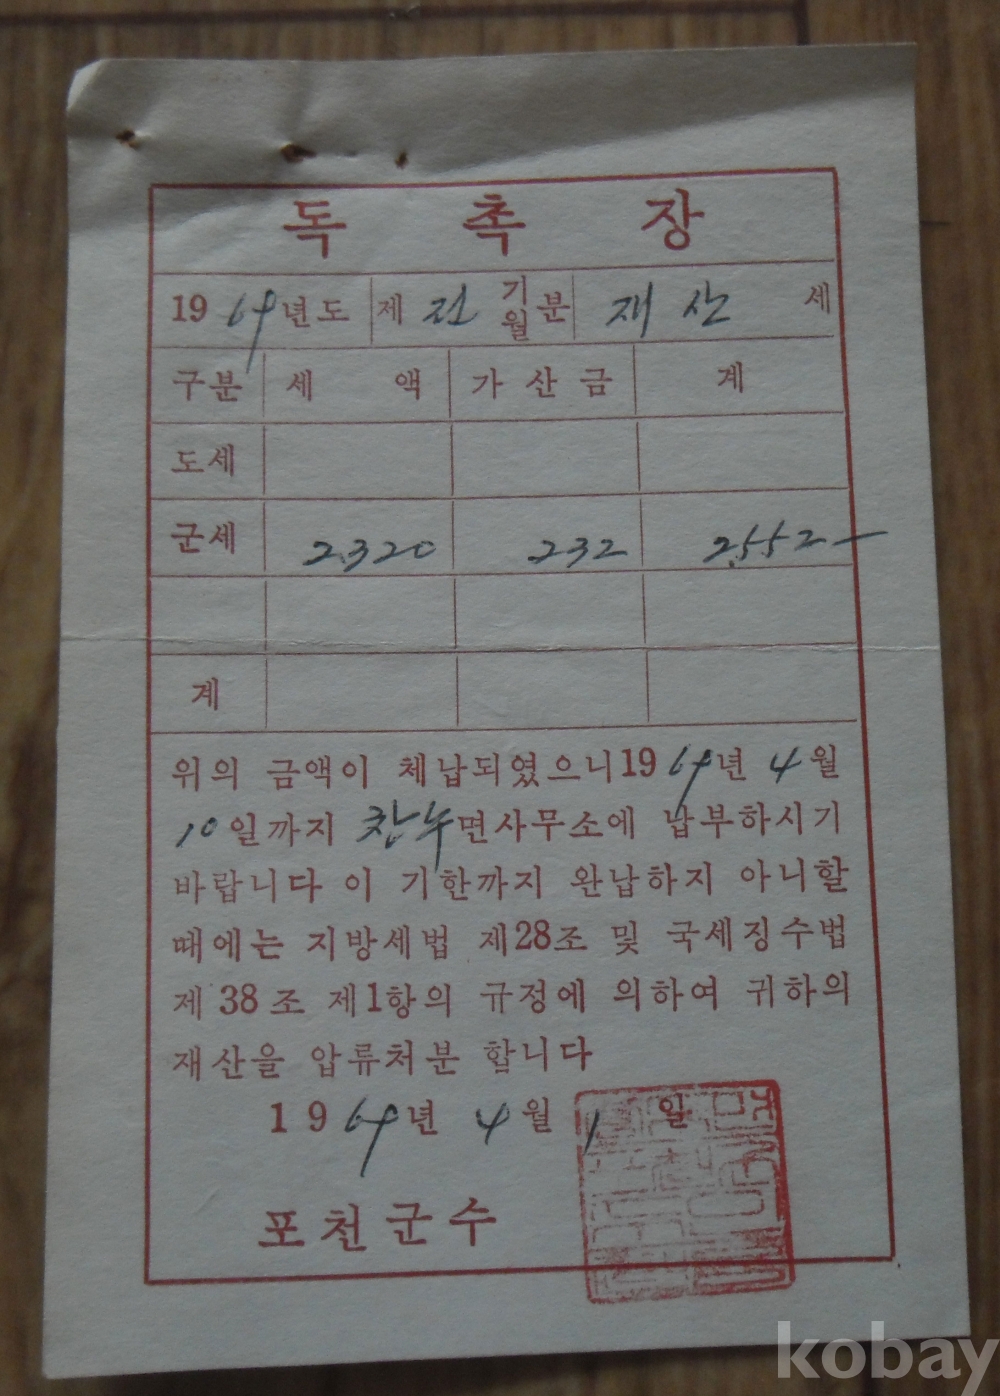 독촉장
1969년도 제 전 기월분 재산 세
구분 세액 가산금 계
도세
군세 2,320 232 2,552-
계
위의 금액이 체납되였으니 1969년 4월
10일까지 면사무소에 납부하시기
바랍니다 이 기한까지 완납하지 아니할
때에는 지방세법 제28조 및 국세징수법
제38조 제1항의 규정에 의하여 귀하의
재산을 압류처분 합니다
1969년 4월 1일
포천군수
kobay